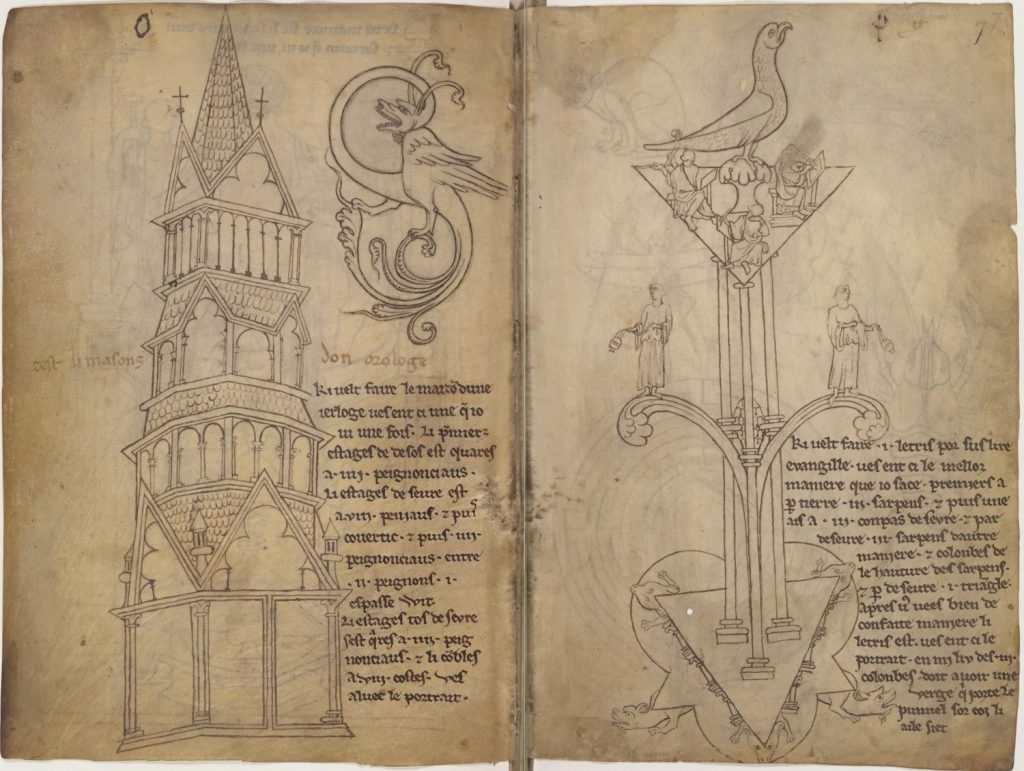 cest li masons don orologe
Ki velt faire le maizō dune
ierloge ves ent ci une q̄ io
vi une fois. Li p̄mier
estages de desos est quares
a .iiii. peignonciaus.
li estages deseure est
a .viii. peniaus. ⁊ puis
covertic. ⁊ puis .iiii.
peignonciaus. entre
.ii. peignons .i.
espasse wit
Li estages tos deseure
sest q̄res a .iiii. peig
nonciaus. ⁊ li cōbles
a .viii. costes. ves
aluec le portrait.
7
Ki velt faire .i. letris por sus lire
evangille. ves ent ci le mellor
maniere que io sace. premiers a
p̄ tierre .iii. sarpens. ⁊ puis une
ais a .iii. conpas deseure. ⁊ par
deseure .iii. sarpens dautre
maniere. ⁊ colonbes de
le hauture des sarpens.
⁊ p̄ deseure .i. triangle.
apres vos vees bien de
confaite maniere li
letris est. ves ent ci le
portrait. en mi liu des .iii.
colonbes doit avoir une
verge q̄ porte le
pumel sor coi li
aile siet